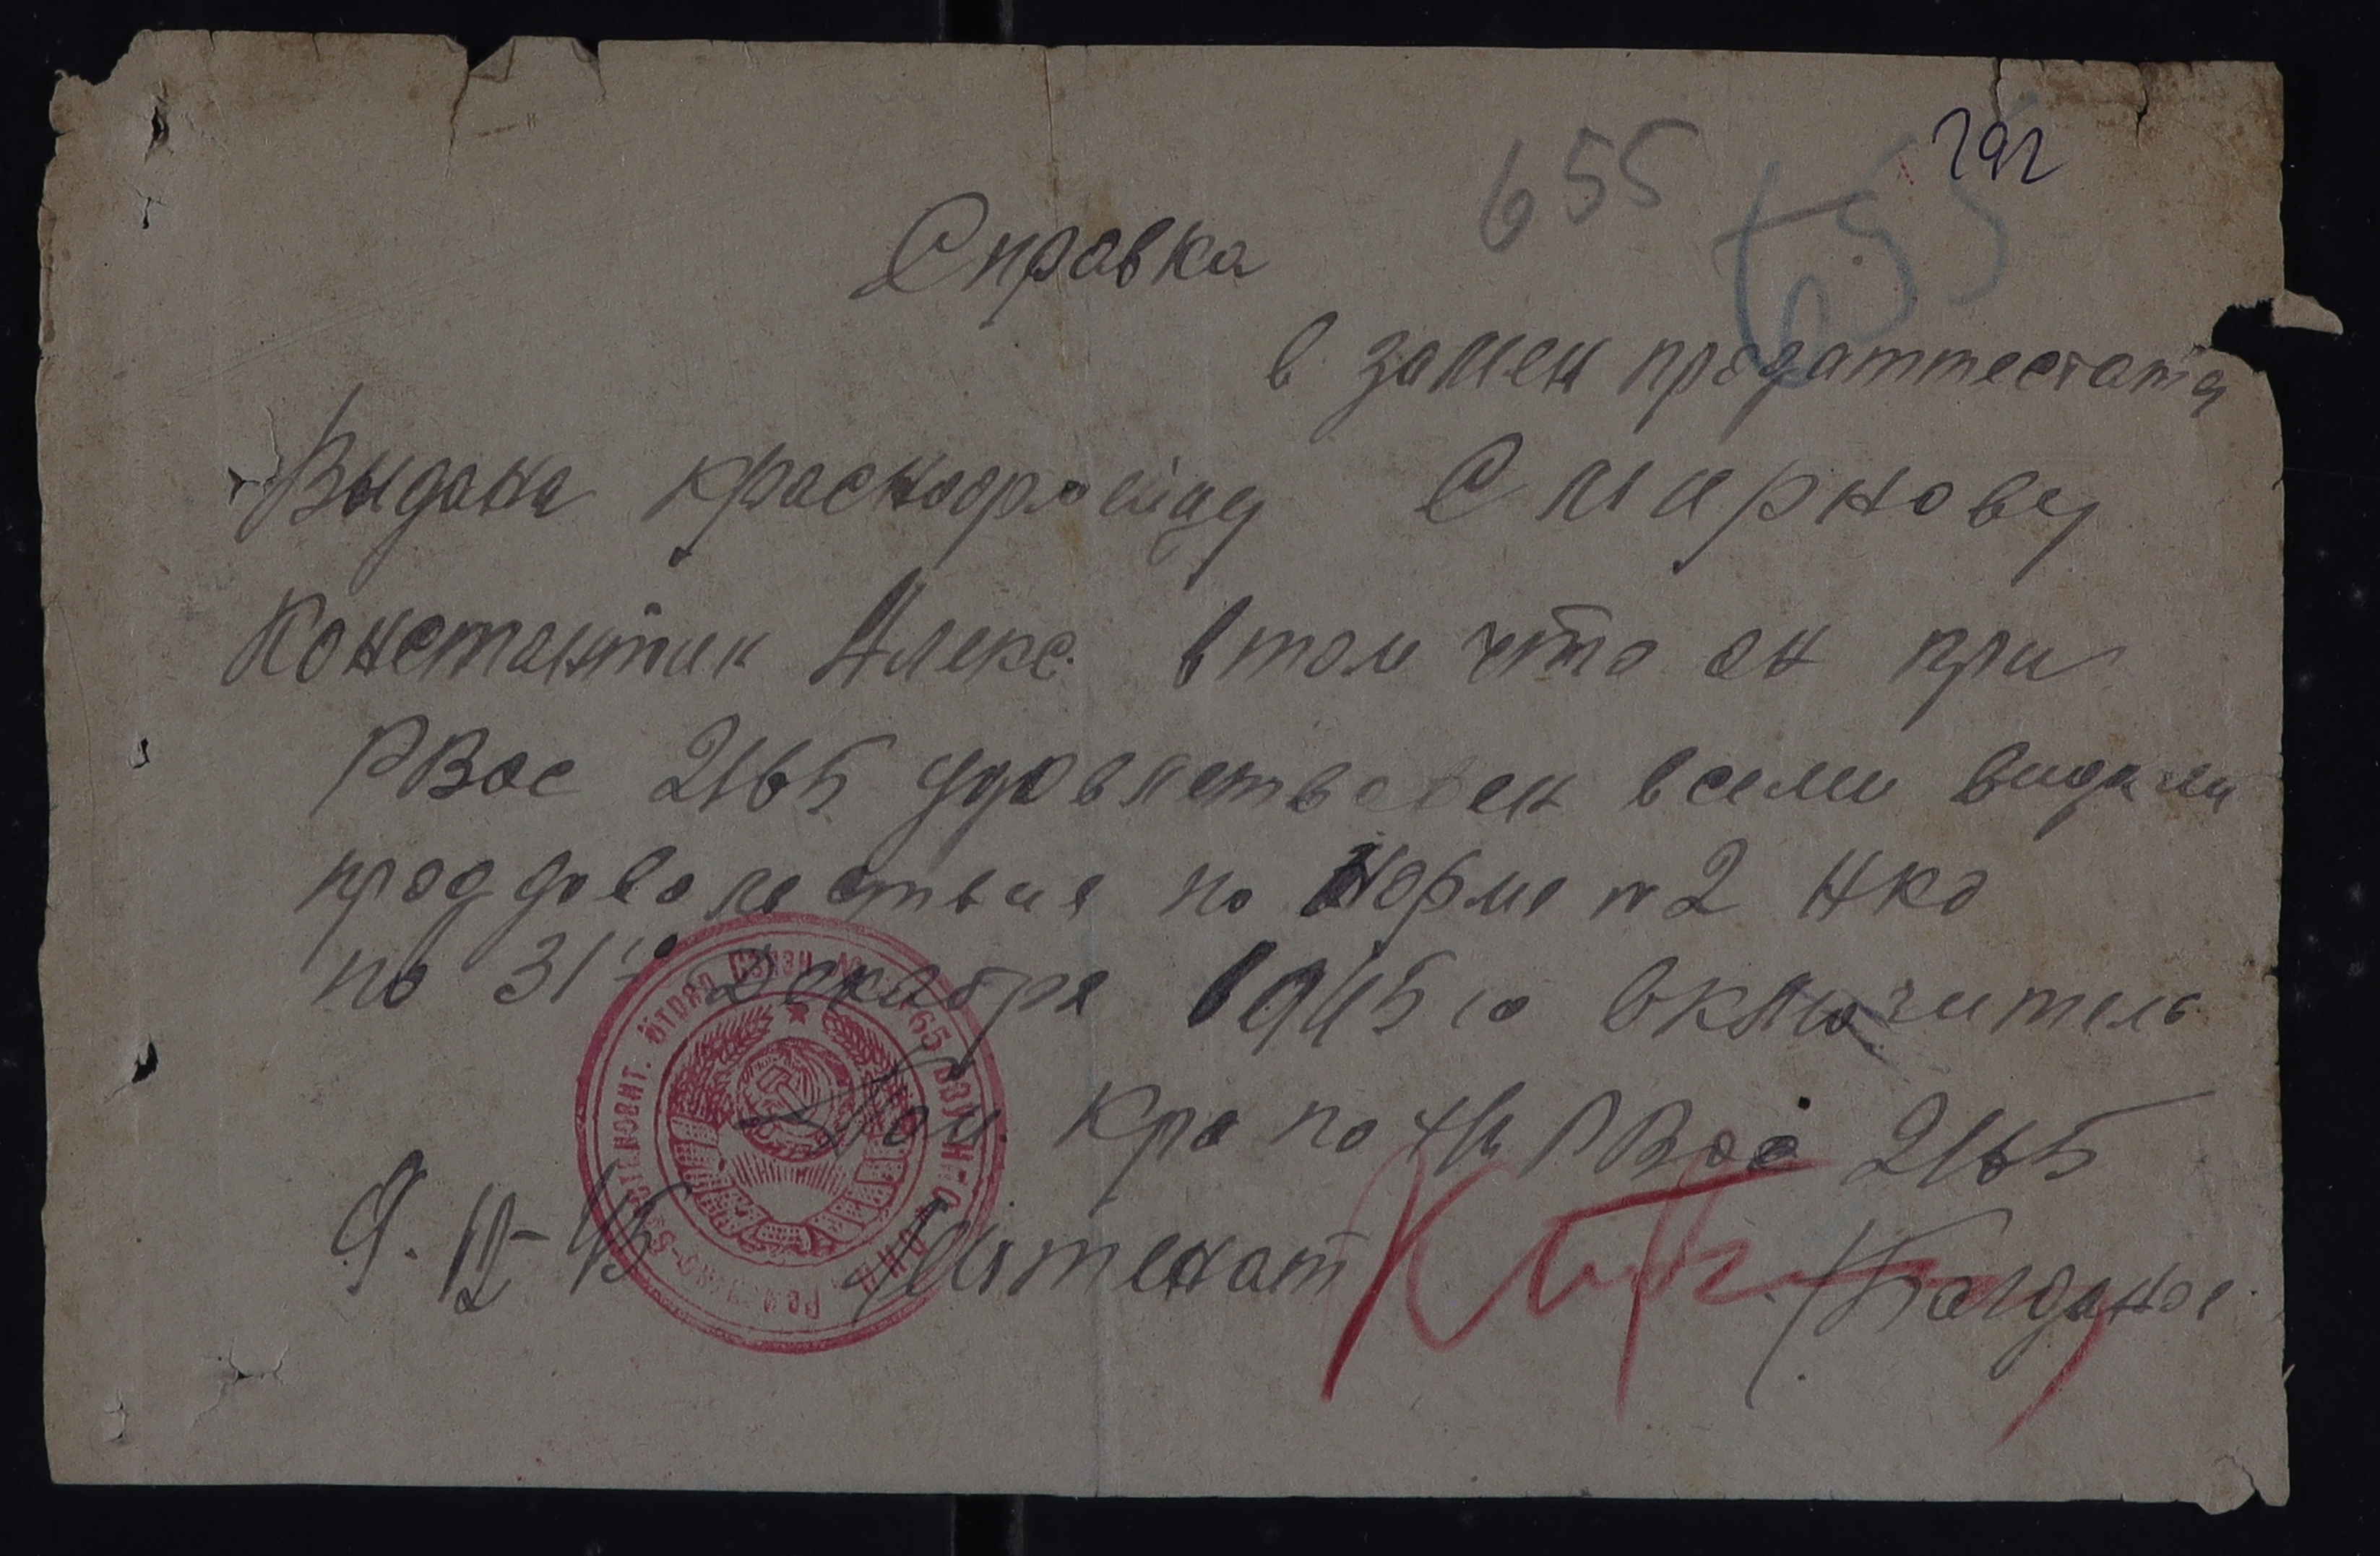 292
655
655
Справка
в замен продаттестата
Выдана красноармейцу Смирнову
Константин Алекс. в том что он при
РВос 2165 удовлетворен всеми видами
проддовольствия по Норме N 2 НКО
по 31го Декабря 1945 го включитель
Пом. Кра по РВос 2165
9. 12-45 Лейтенант (Богданов